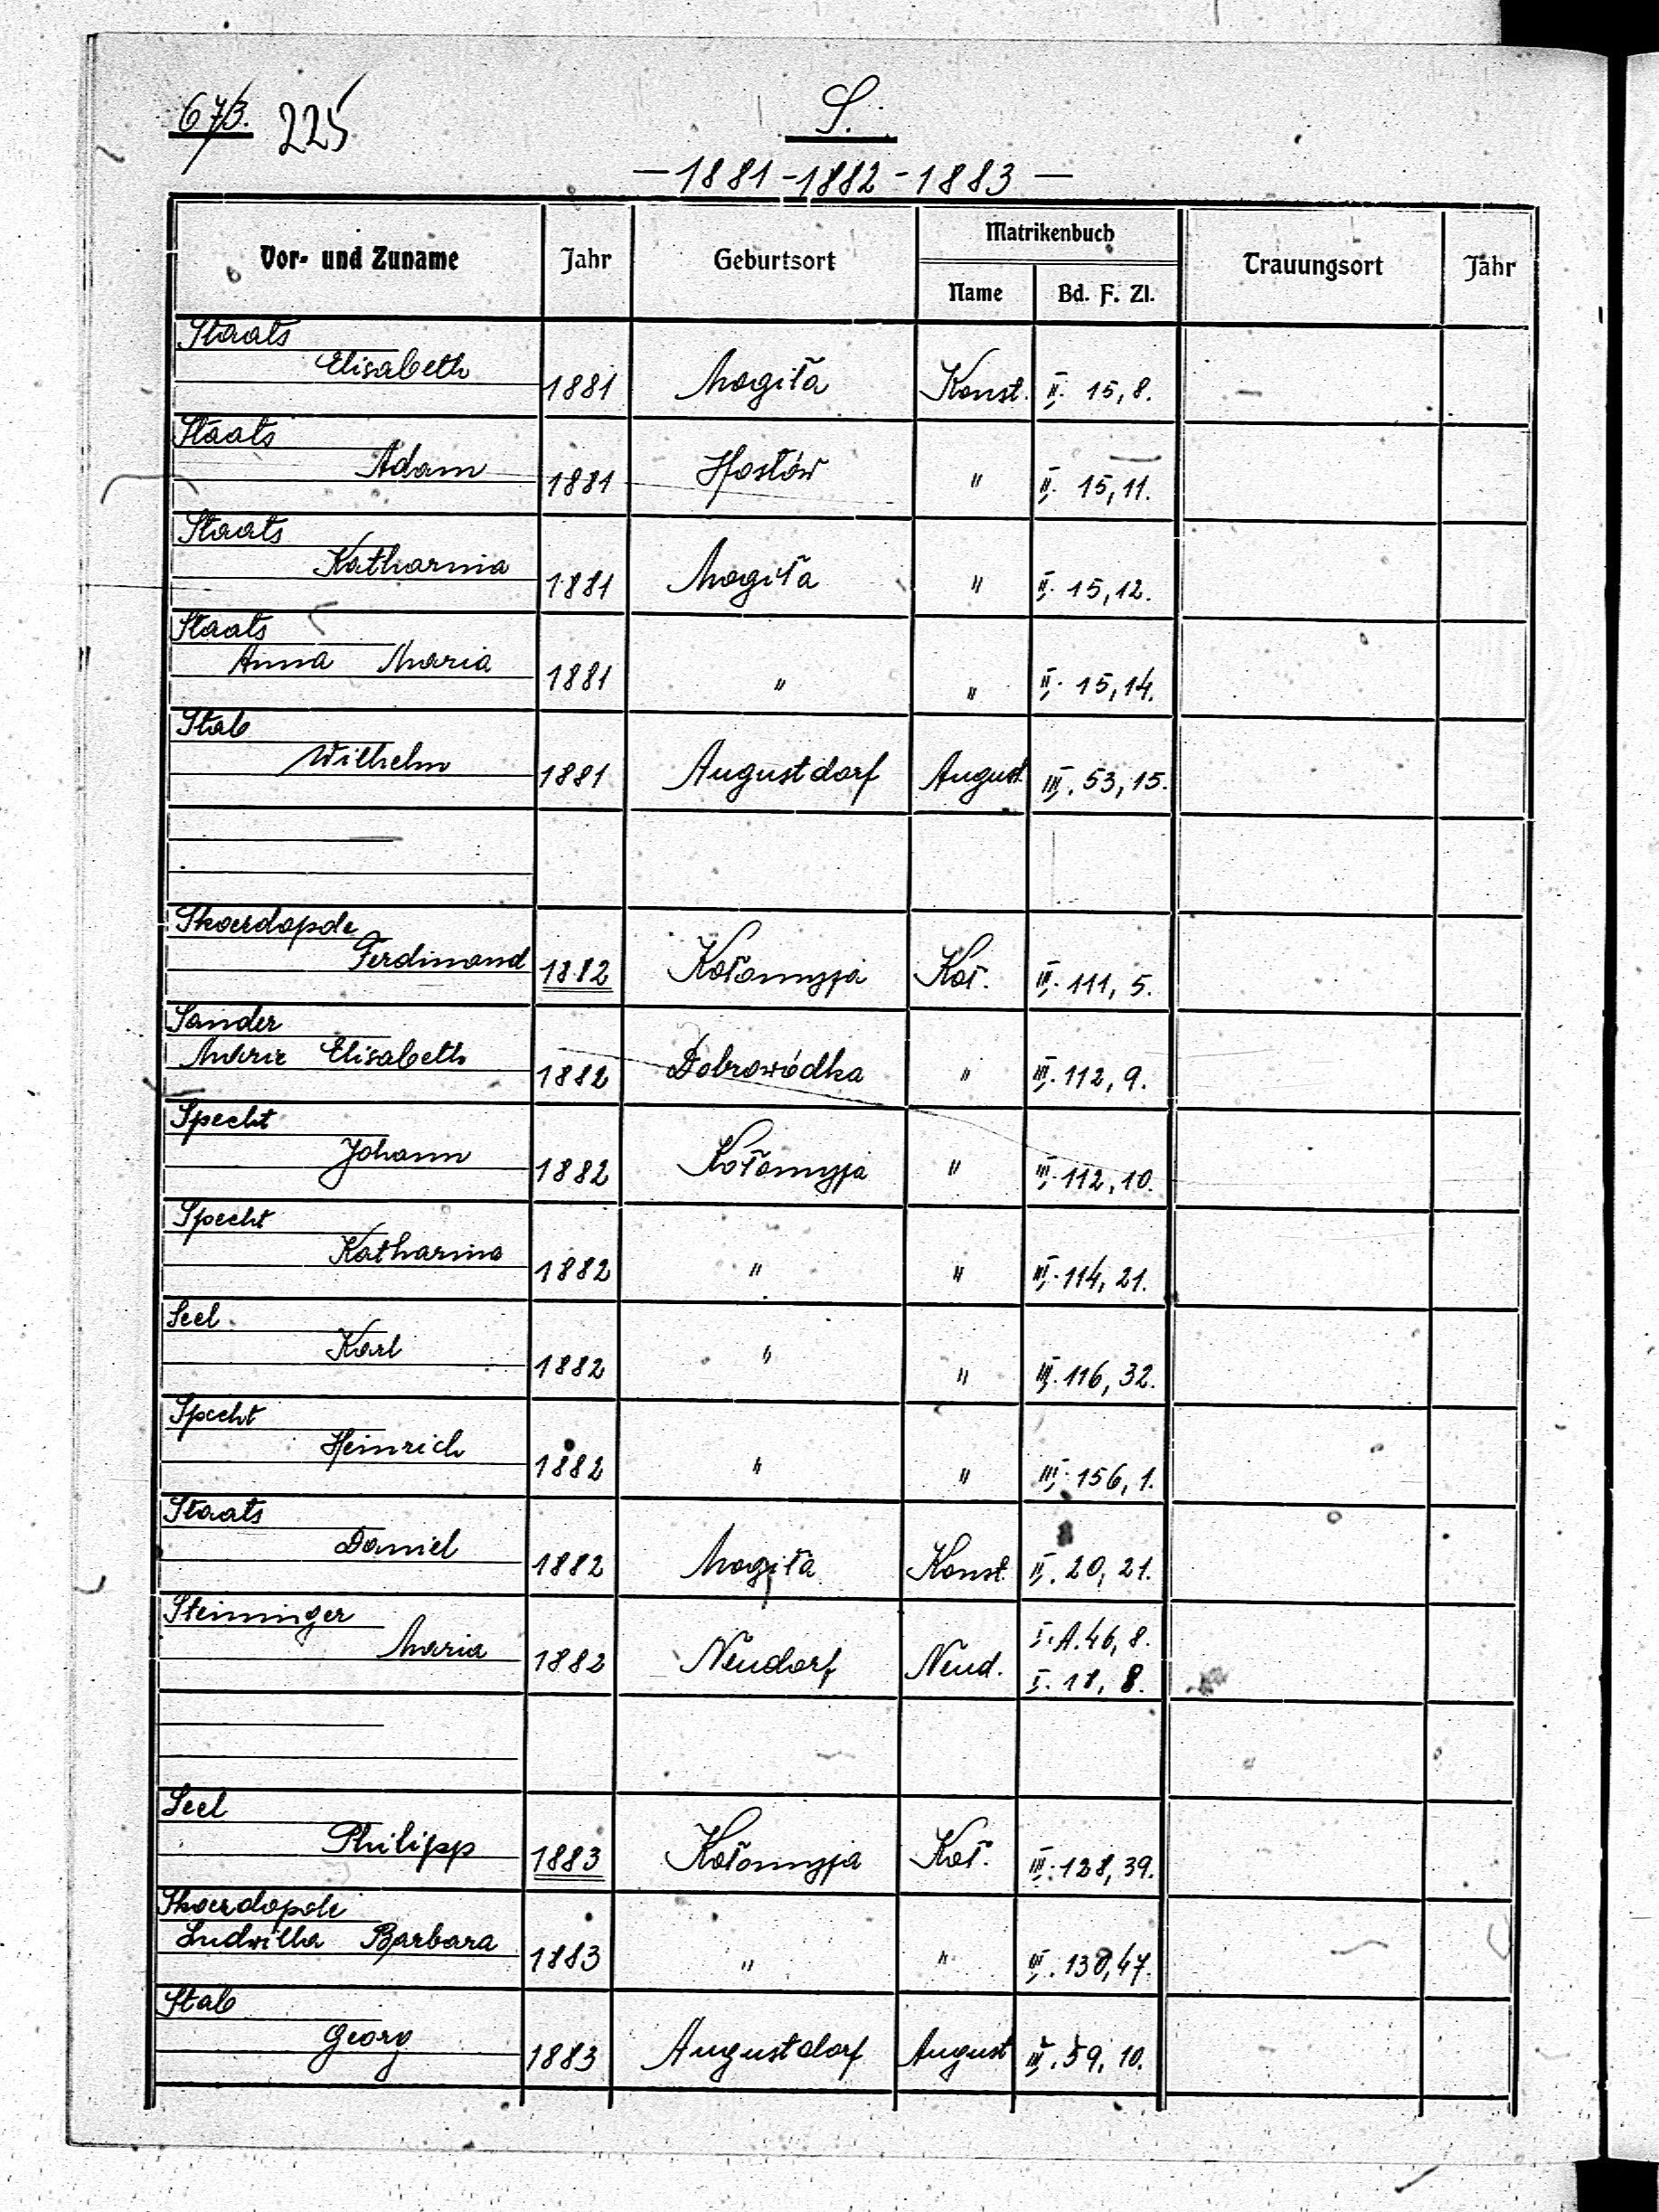 673. 225
S.
— 1881 - 1882 - 1883 —
Vor- und Zuname Jahr Geburtsort Matrikenbuch Trauungsort Jahr
Name Bd. F. Zl.
Staats
Elisabeth 1881 Mogiła Konst. II. 15, 8.
Staats
Adam 1881 Hostów " II. 15, 11.
Staats
Katharina 1881 Mogiła " II. 15, 12.
Staats
Anna Maria 1881 " " II. 15, 14.
Stab
Wilhelm 1881 Augustdorf August. III. 53, 15.
Skoerdopole
Ferdinand 1882 Kołomyja Koł. III. 111, 5.
Sander
Marie Elisabeth 1882 Dobrowódka " III. 112, 9.
Specht
Johann 1882 Kołomyja " III. 112, 10.
Specht
Katharina 1882 " " III. 114, 21.
Seel
Karl 1882 " " III. 116, 32.
Specht
Heinrich 1882 " " III. 156, 1.
Staats
Daniel 1882 Mogiła Konst. II. 20, 21.
Steininger
I. A. 46, 8.
Maria 1882 Neudorf Neud.
I. 18, 8.
Seel
Philipp 1883 Kołomyja Koł. III. 128, 39.
Ludwika Barbara 1883 " " III. 130, 47.
Stab
Georg 1883 Augustdorf August III. 59, 10.